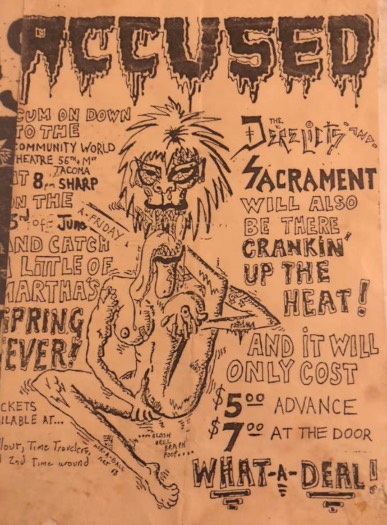 ACCUSED
CUM ON DOWN
TO THE
COMMUNITY WORLD
THEATRE 56TH & M ST
TACOMA
AT 8PM SHARP
ON THE
5TH OF JUNE
A-FRIDAY
AND CATCH
A LITTLE OF
MARTHA'S
SPRING
FEVER!
TICKETS
AVAILABLE AT...
Time Travelers,
2nd Time around
THE
DERELICTS AND
SACRAMENT
WILL ALSO
BE THERE
CRANKIN'
UP THE
HEAT!
AND iT WILL
ONLY COST
$5.00 ADVANCE
$7.00 AT THE DOOR
WHAT-A-DEAL!